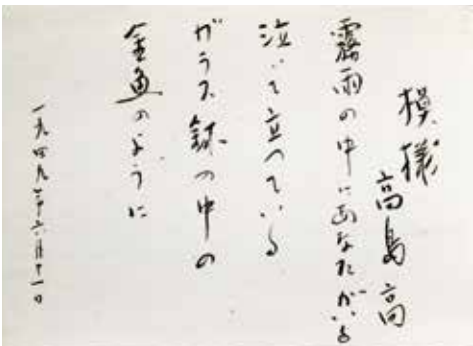 模様
高島高
霧雨の中にあなたがいる
泣いて立つている
ガラス鉢の中の
金魚のように
一九四九年六月十一日